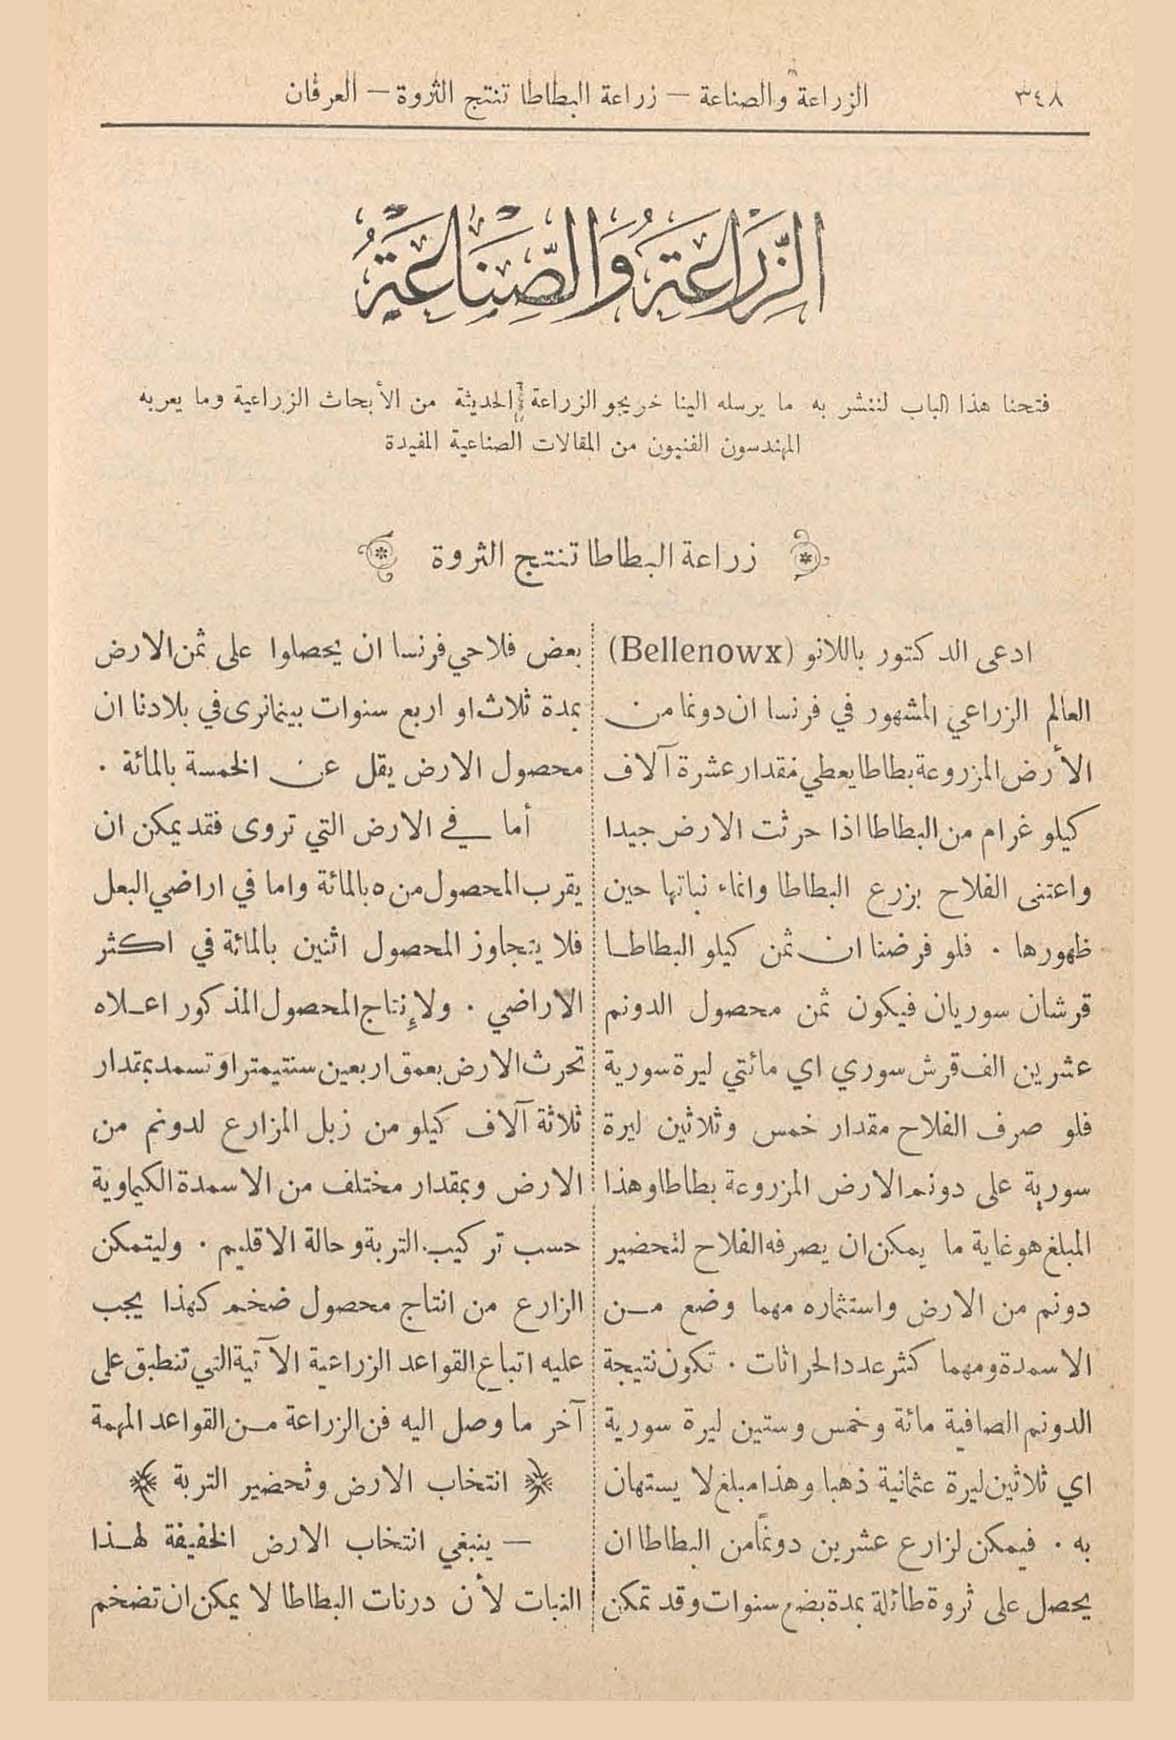 ٣٤٨ الزراعة والصناعة — زراعة البطاطا تنتج الثروة — العرفان
الزِّرَاعَةُ وَالصِّنَاعَةُ
فتحنا هذا الباب لننشر به ما يرسله الينا خريجو الزراعة الحديثة من الأبحاث الزراعية وما يعربه
المهندسون الفنيون من المقالات الصناعية المفيدة
زراعة البطاطا تنتج الثروة
ادعى الدكتور باللانو (Bellenowx)
العالم الزراعي المشهور في فرنسا ان دونما من
الأرض المزروعة بطاطا يعطي مقدار عشرة آلاف
كيلو غرام من البطاطا اذا حرثت الارض جيدا
واعتنى الفلاح بزرع البطاطا وانماء نباتها حين
ظهورها . فلو فرضنا ان ثمن كيلو البطاطا
قرشان سوريان فيكون ثمن محصول الدونم
عشرين الف قرش سوري اي مائتي ليرة سورية
فلو صرف الفلاح مقدار خمس وثلاثين ليرة
سورية على دونم الارض المزروعة بطاطا وهذا
المبلغ هو غاية ما يمكن ان يصرفه الفلاح لتحضير
دونم من الارض واستثماره مهما وضع من
الاسمدة ومهما كثر عدد الحراثات . تكون نتيجة
الدونم الصافية مائة وخمس وستين ليرة سورية
اي ثلاثين ليرة عثمانية ذهبا وهذا مبلغ لا يستهان
به . فيمكن لزارع عشرين دونماً من البطاطا ان
يحصل على ثروة طائلة بمدة بضع سنوات وقد تمكن
بعض فلاحي فرنسا ان يحصلوا على ثمن الارض
بمدة ثلاث او اربع سنوات بينما نرى في بلادنا ان
محصول الارض يقل عن الخمسة بالمائة .
أما في الارض التي تروى فقد يمكن ان
يقرب المحصول من ٥ بالمائة واما في اراضي البعل
فلا يتجاوز المحصول اثنين بالمائة في اكثر
الاراضي . ولإنتاج المحصول المذكور اعلاه
تحرث الارض بعمق اربعين سنتيمترا وتسمد بمقدار
ثلاثة آلاف كيلو من زبل المزارع لدونم من
الارض وبمقدار مختلف من الاسمدة الكيماوية
حسب تركيب التربة وحالة الاقليم . وليتمكن
الزارع من انتاج محصول ضخم كهذا يجب
عليه اتباع القواعد الزراعية الآتية التي تنطبق على
آخر ما وصل اليه فن الزراعة من القواعد المهمة
انتخاب الارض وتحضير التربة
— ينبغي انتخاب الارض الخفيفة لهذا
النبات لأن درنات البطاطا لا يمكن ان تضخم